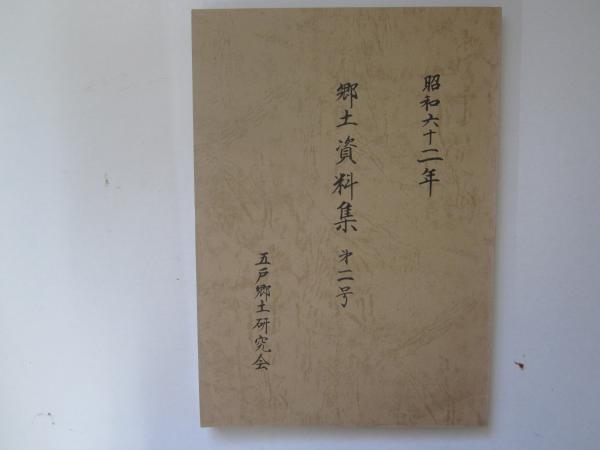 昭和六十二年
郷土資料集 第二号
五戸郷土研究会